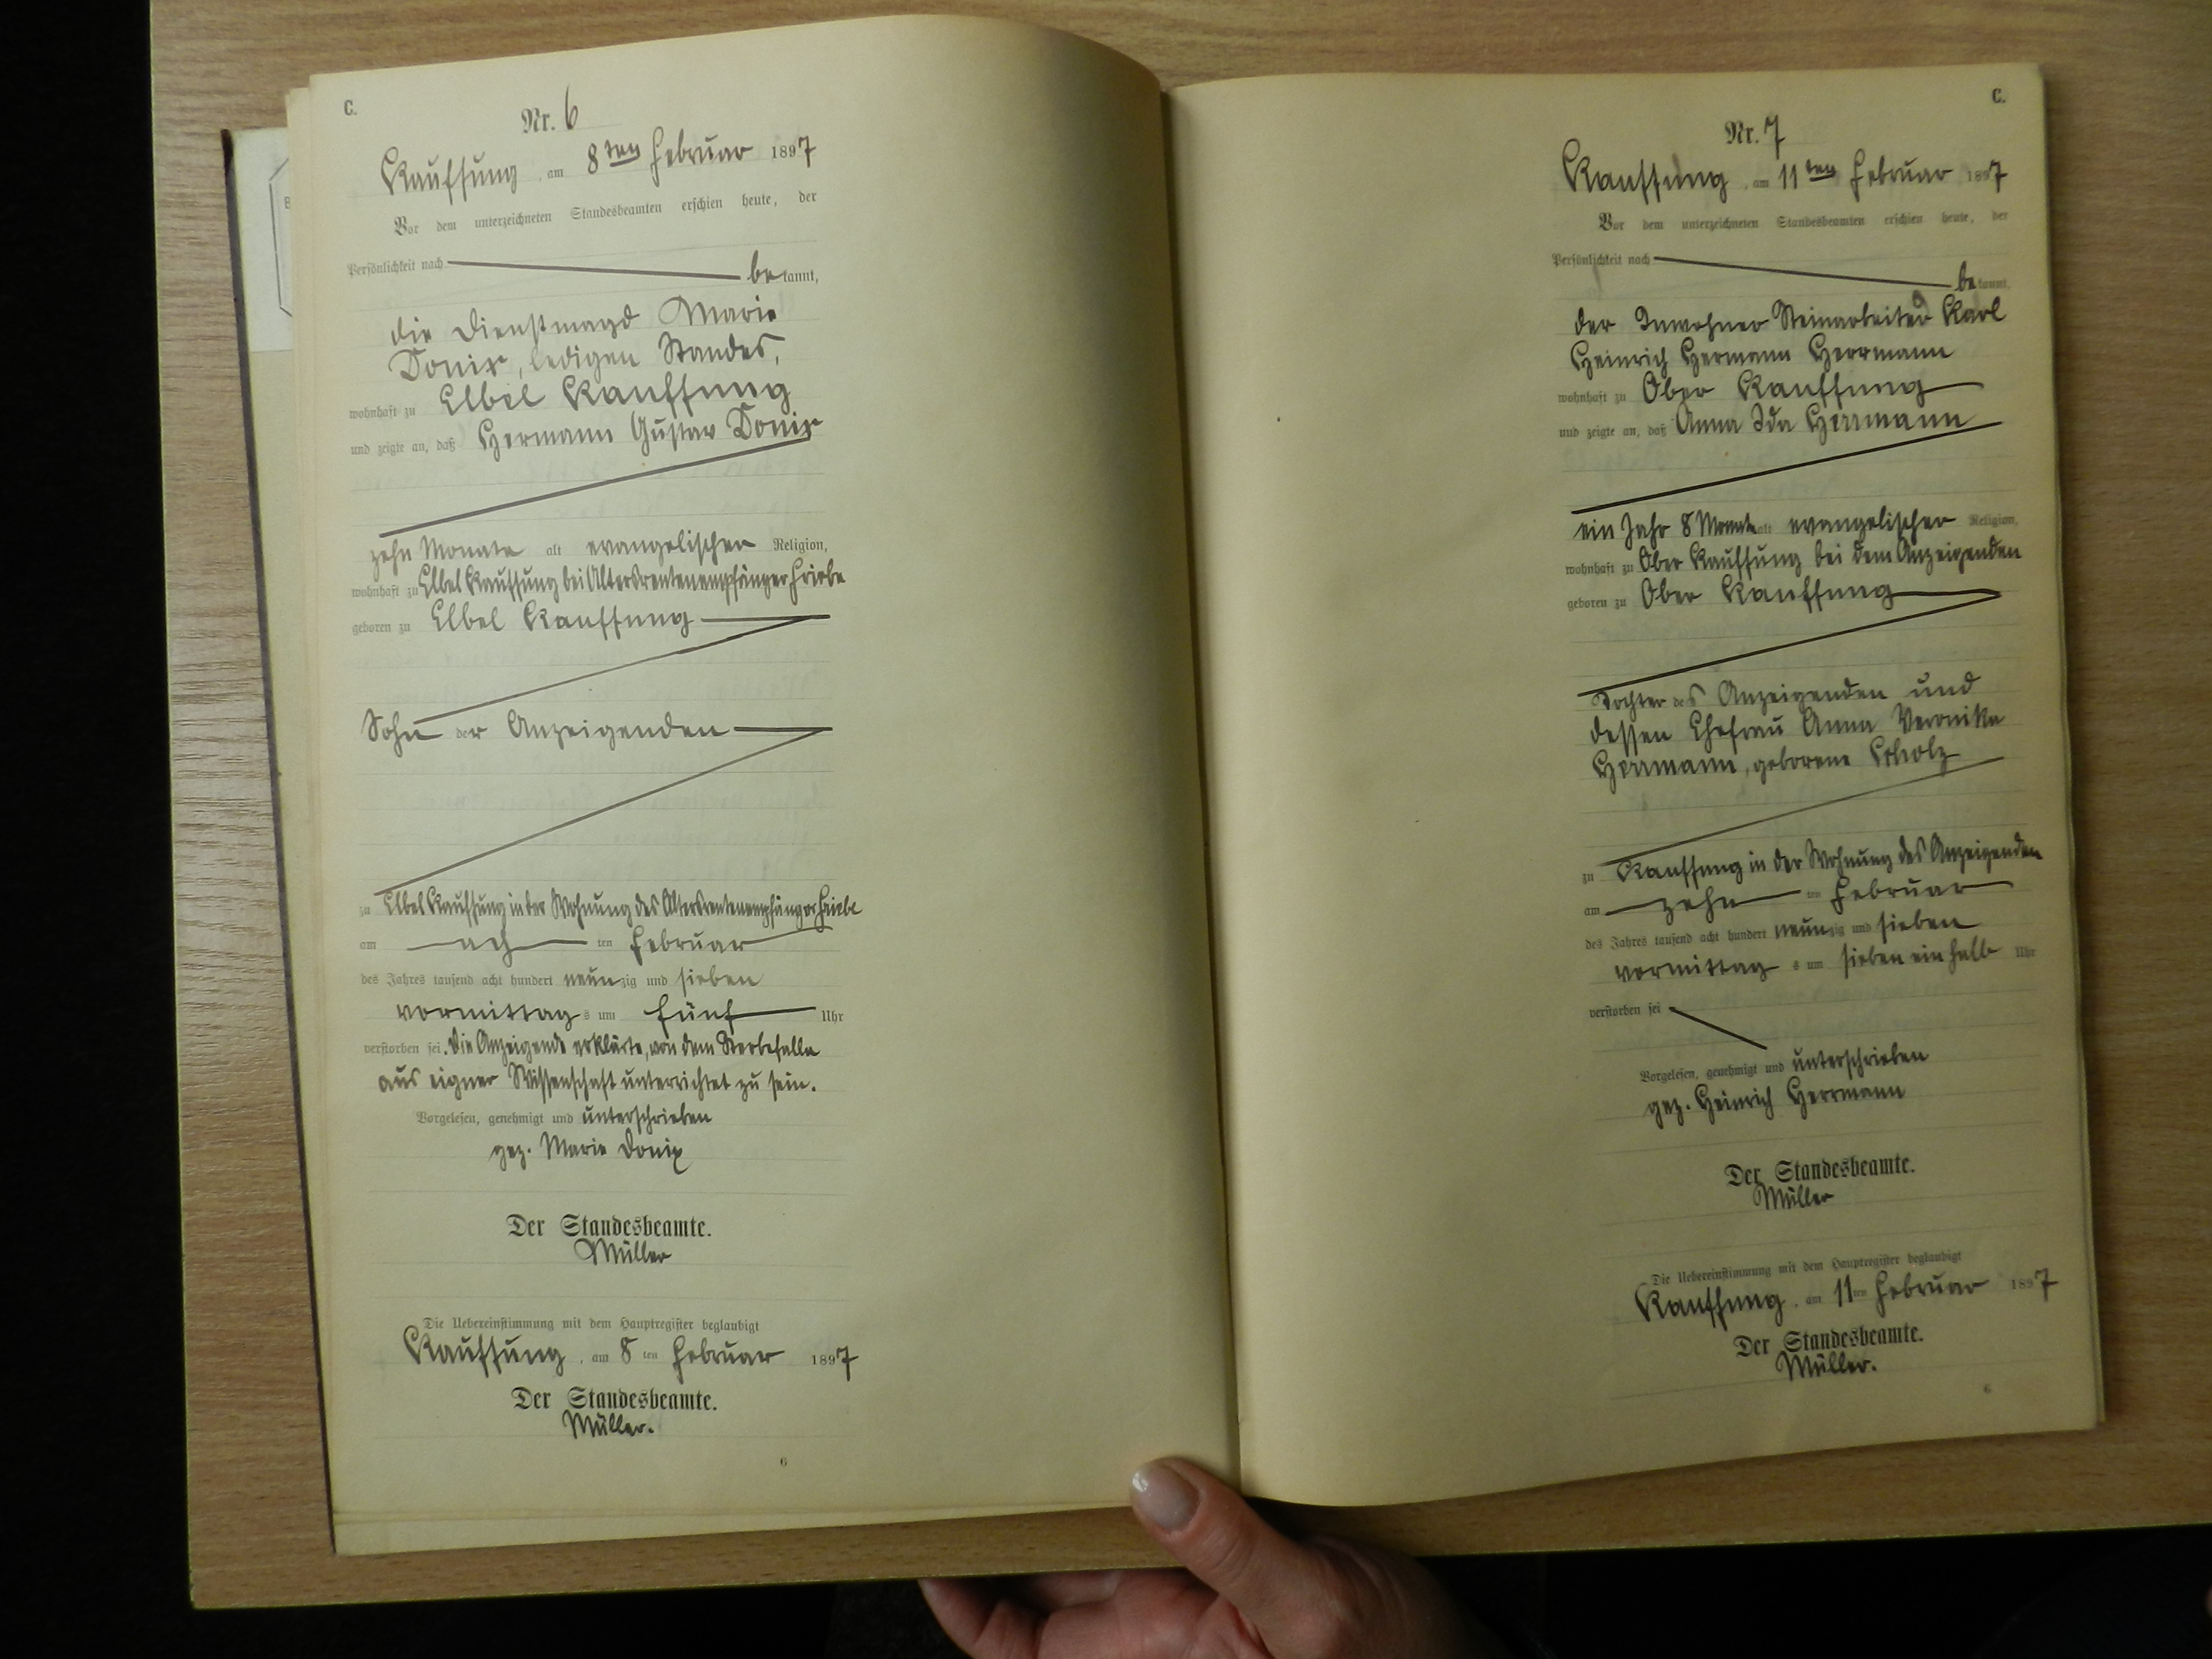 C.
Nr. 6
Kauffung, am 8ten Februar 1897
Vor dem unterzeichneten Standesbeamten erschien heute, der
Persönlichkeit nach bekannt,
die Dienstmagd Marie
Donix, ledigen Standes,
wohnhaft zu Elbel Kauffung
und zeigte an, daß Hermann Gustav Donix
zehn Monate alt evangelischer Religion,
wohnhaft zu Elbel Kauffung bei Altersrentenempfänger Friebe
geboren zu Elbel Kauffung
Sohn der Anzeigenden
zu Elbel Kauffung in der Wohnung des Altersrentenempfänger Friebe
am ach ten Februar
des Jahres tausend acht hundert neunzig und sieben
vormittags um fünf Uhr
verstorben sei. Die Anzeigende erklärte, von dem Sterbefalle
aus eigner Wissenschaft unterrichtet zu sein.
Vorgelesen, genehmigt und unterschrieben
gez. Marie Donix
Der Standesbeamte.
Müller
Die Uebereinstimmung mit dem Hauptregister beglaubigt
Kauffung, am 8ten Februar 1897
Der Standesbeamte.
Müller.
6
C.
Nr. 7
Kauffung, am 11ten Februar 1897
Vor dem unterzeichneten Standesbeamten erschien heute, der
Persönlichkeit nach bekannt,
der Inwohner Steinarbeiter Karl
Heinrich Hermann Herrmann
wohnhaft zu Ober Kauffung
und zeigte an, daß Anna Ida Herrmann
ein Jahr 8 Monate alt evangelischer Religion,
wohnhaft zu Ober Kauffung bei dem Anzeigenden
geboren zu Ober Kauffung
Tochter des Anzeigenden und
dessen Ehefrau Anna Veronika
Herrmann, geborene Scholz
zu Kauffung in der Wohnung des Anzeigenden
am zehn ten Februar
des Jahres tausend acht hundert neunzig und sieben
vormittags um sieben ein halb Uhr
verstorben sei
Vorgelesen, genehmigt und unterschrieben
gez. Heinrich Herrmann
Der Standesbeamte.
Müller
Die Uebereinstimmung mit dem Hauptregister beglaubigt
Kauffung, am 11ten Februar 1897
Der Standesbeamte.
Müller.
6